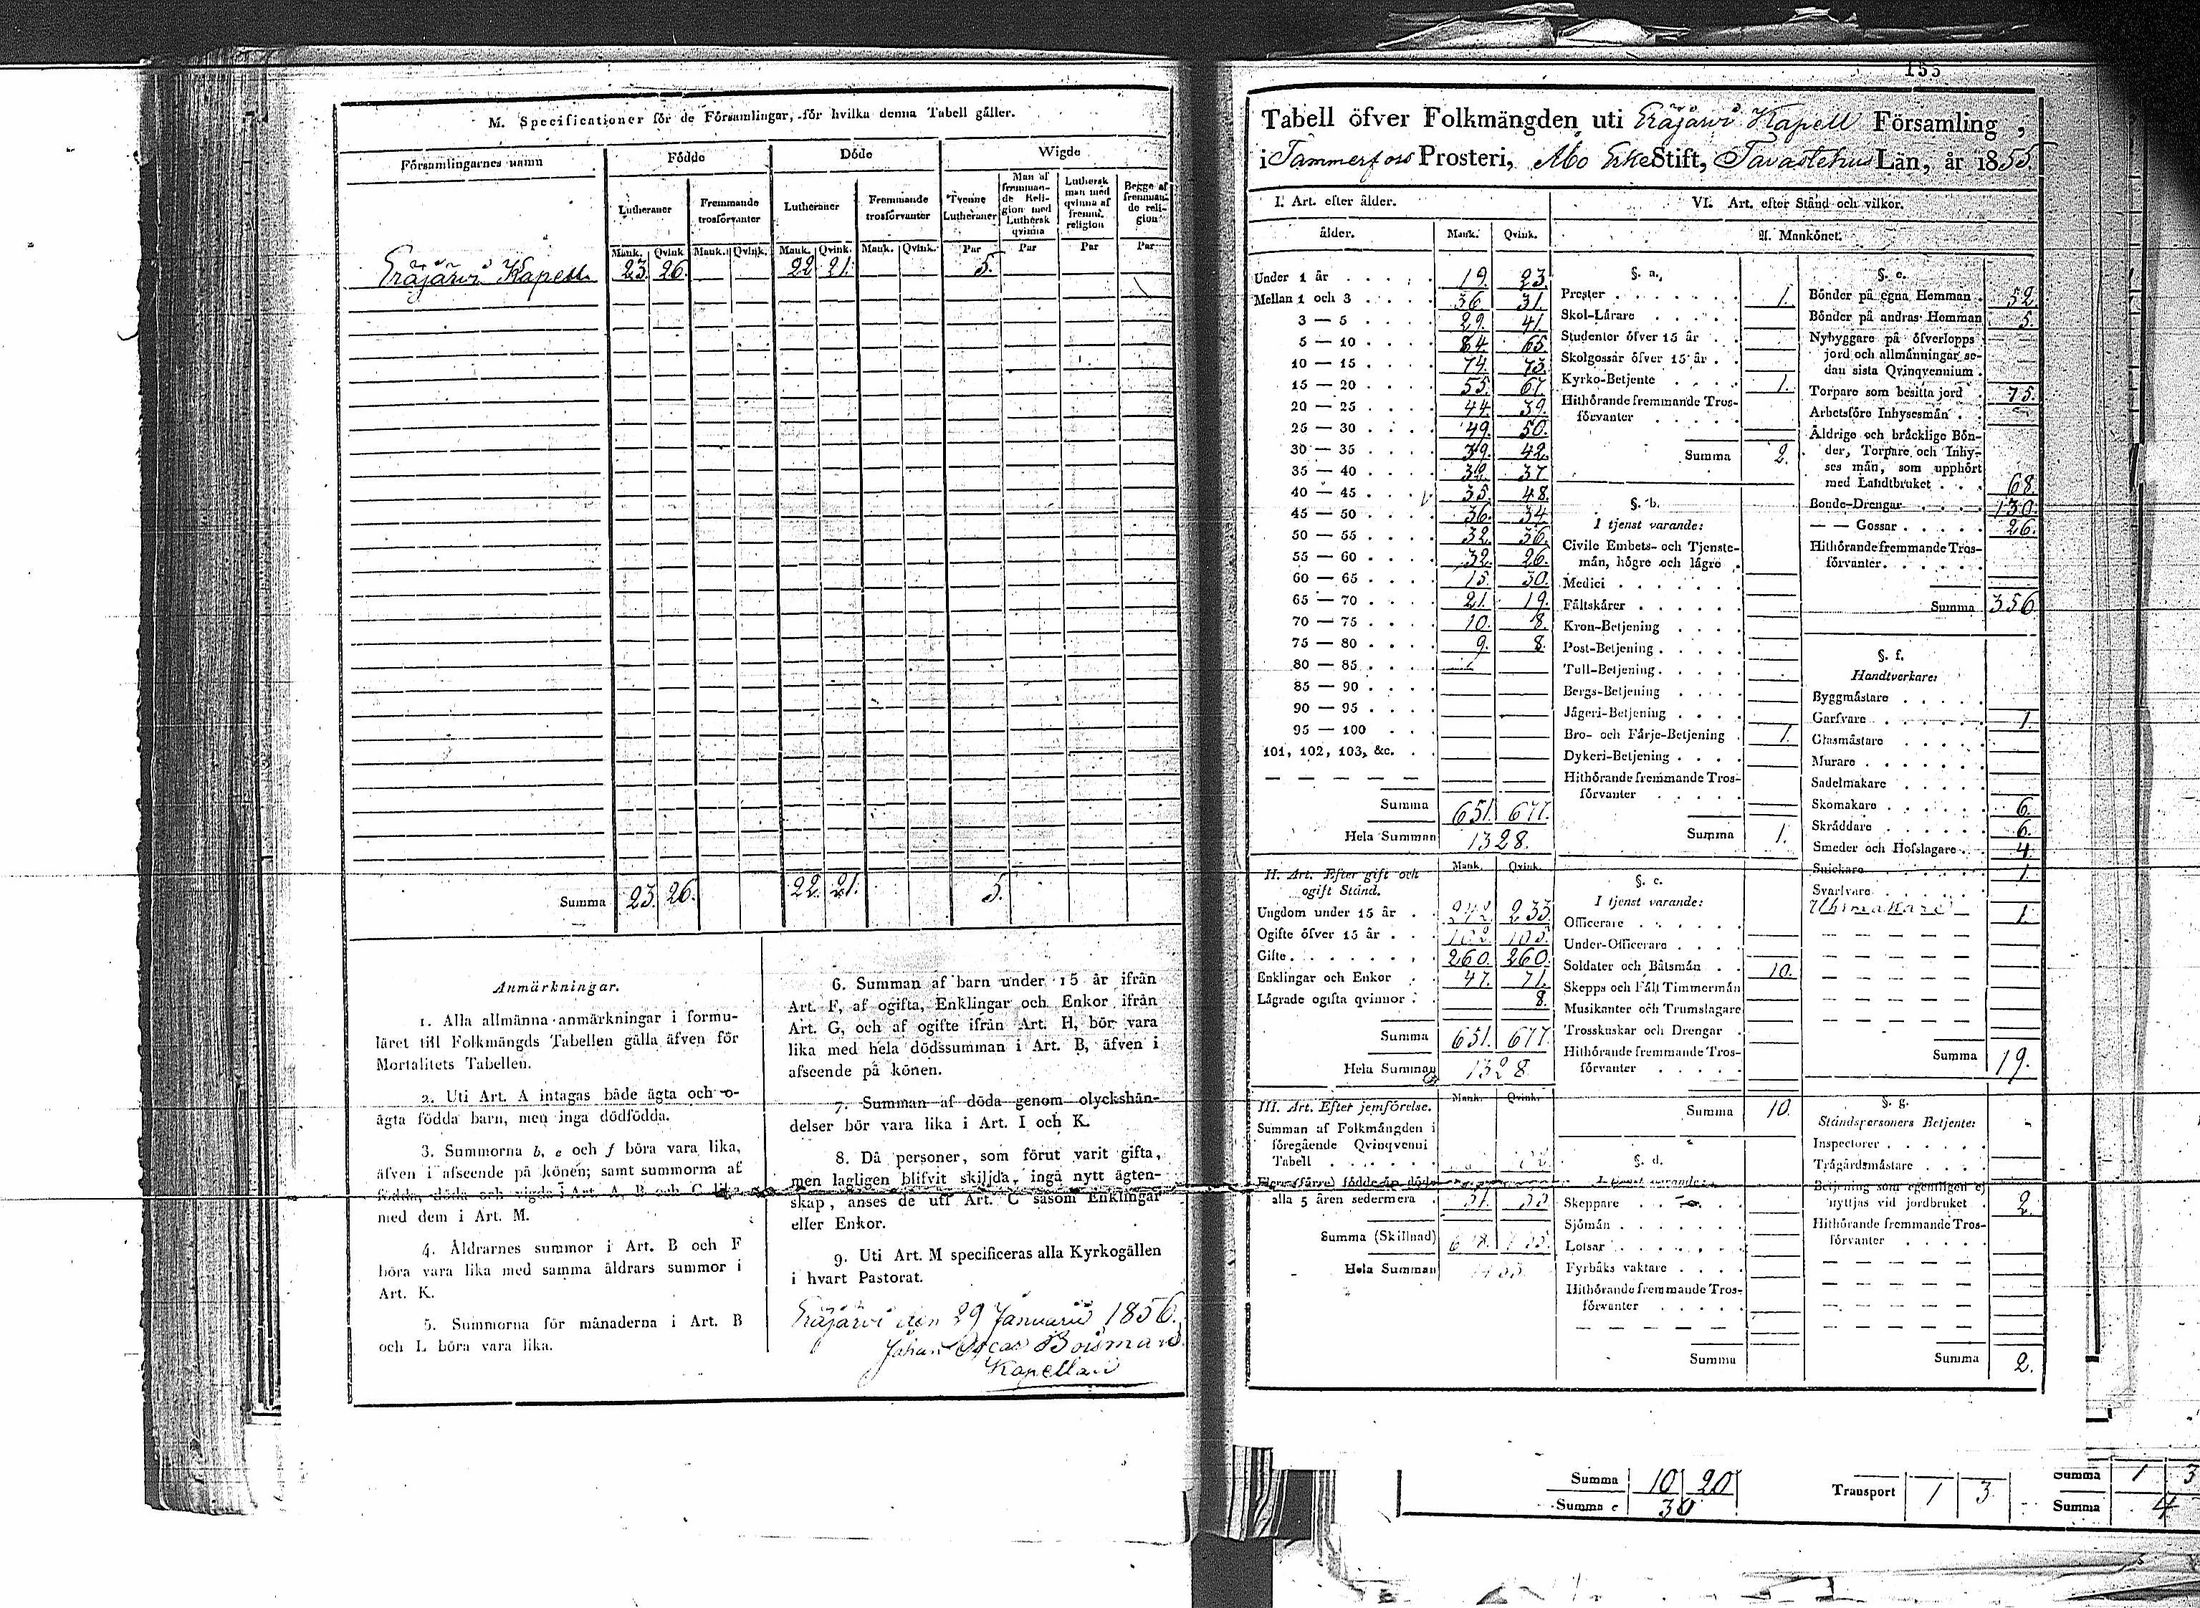 M. Specificationer för de Församlingar, för hvilka denna Tabell gäller.
Församlingarnes namn
Födde
Döde
Wigde
Lutheraner
Fremmande trosförvanter
Lutheraner
Fremmande trosförvanter
Tvenne Lutheraner
Man af fremmande Religion med Luthersk qvinna
Luthersk man med qvinna af fremm. religion
Begge af fremmande religion
Mank. Qvink. Mank. Qvink. Mank. Qvink. Mank. Qvink. Par Par Par Par
Eräjärvi Kapell 23. 26. 22 21. 5.
Summa 23. 26. 22. 21. 5.
Anmärkningar.
1. Alla allmänna anmärkningar i formu-
läret till Folkmängds Tabellen gälla äfven för
Mortalitets Tabellen.
2. Uti Art. A intagas både ägta och o-
ägta födda barn, men inga dödfödda.
3. Summorna b, e och f böra vara lika,
äfven i afseende på könen; samt summorna af
födda, döda och vigda i Art. A, B och C lika
med dem i Art. M.
4. Åldrarnes summor i Art. B och F
böra vara lika med samma åldrars summor i
Art. K.
5. Summorna för månaderna i Art. B
och L böra vara lika.
6. Summan af barn under 15 år ifrån
Art. F, af ogifta, Enklingar och Enkor ifrån
Art. G, och af ogifte ifrån Art. H, bör vara
lika med hela dödssumman i Art. B, äfven i
afseende på könen.
7. Summan af döda genom olyckshän-
delser bör vara lika i Art. I och K.
8. Då personer, som förut varit gifta,
men lagligen blifvit skiljda, ingå nytt ägten-
skap, anses de uti Art. C såsom Enklingar
eller Enkor.
9. Uti Art. M specificeras alla Kyrkogällen
i hvart Pastorat.
Eräjärvi den 29 Januarii 1856.
Johan Oscar Boisman
Kapellan
Tabell öfver Folkmängden uti Eräjärvi Kapell Församling,
i Tammerfors Prosteri, Åbo Erke Stift, Tavastehus Län, år 1855.
I. Art. efter ålder.
ålder. Mank. Qvink.
Under 1 år 19. 23.
Mellan 1 och 3 36 31.
3 — 5 29. 41.
5 — 10 84 65.
10 — 15 74. 73.
15 — 20 55. 67.
20 — 25 44 39.
25 — 30 49. 50.
30 — 35 39. 42.
35 — 40 32. 37
40 — 45 35. 48.
45 — 50 36. 34
50 — 55 32. 36.
55 — 60 32. 26.
60 — 65 15. 30.
65 — 70 21. 19.
70 — 75 10. 8.
75 — 80 9. 8.
80 — 85
85 — 90
90 — 95
95 — 100
101, 102, 103, &c.
Summa 651. 677.
Hela Summan 1328.
II. Art. Efter gift och
ogift Stånd.
Mank. Qvink.
Ungdom under 15 år 242. 233.
Ogifte öfver 15 år 102. 105.
Gifte 260. 260.
Enklingar och Enkor 47. 71.
Lägrade ogifta qvinnor 8.
Summa 651. 677.
Hela Summan 1328
III. Art. Efter jemförelse.
Mank. Qvink.
Summan af Folkmängden i
föregående Qvinqvenni
Tabell
alla 5 åren sedermera
Summa (Skillnad)
Hela Summan
VI. Art. efter Stånd och vilkor.
A. Mankönet.
§. a.
Prester 1.
Skol-Lärare
Studenter öfver 15 år
Skolgossar öfver 15 år
Kyrko-Betjente 1.
Hithörande fremmande Tros-
förvanter
Summa 2.
§. b.
I tjenst varande:
Civile Embets- och Tjenste-
män, högre och lägre
Medici
Fältskärer
Kron-Betjening
Post-Betjening
Tull-Betjening
Bergs-Betjening
Jägeri-Betjening
Bro- och Färje-Betjening 1.
Dykeri-Betjening
Hithörande fremmande Tros-
förvanter
Summa 1.
§. c.
I tjenst varande:
Officerare
Under-Officerare
Soldater och Båtsmän 10.
Skepps och Fält Timmermän
Musikanter och Trumslagare
Trosskuskar och Drengar
Hithörande fremmande Tros-
förvanter
Summa 10.
§. d.
I tjenst varande:
Skeppare
Sjömän
Lotsar
Fyrbåks vaktare
Hithörande fremmande Tros-
förvanter
Summa
§. e.
Bönder på egna Hemman 52
Bönder på andras Hemman 5.
Nybyggare på öfverlopps
jord och allmänningar se-
dan sista Qvinqvennium
Torpare som besitta jord 75.
Arbetsföre Inhysesmän
Åldrige och bräcklige Bön-
der, Torpare och Inhy-
ses män, som upphört
med Landtbruket 68.
Bonde-Drengar 130.
— — Gossar 26.
Hithörande fremmande Tros-
förvanter
Summa 356
§. f.
Handtverkare:
Byggmästare
Garfvare 1.
Glasmästare
Murare
Sadelmakare
Skomakare 6.
Skräddare 6.
Smeder och Hofslagare 4.
Snickare 1.
Svarfvare
Uhrmakare 1.
Summa 19.
§. g.
Ståndspersoners Betjente:
Inspectorer
Trägårdsmästare
Betjening som egentligen ej
nyttjas vid jordbruket 2.
Hithörande fremmande Tros-
förvanter
Summa 2.
Summa 10 20
Summa e 30
Transport 1 3
Summa 1 3
Summa 4